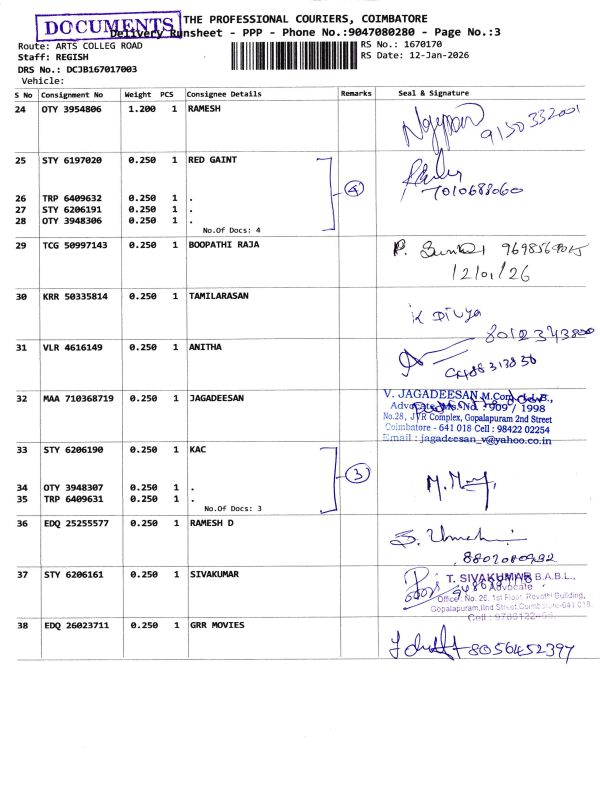 DOCUMENTS
THE PROFESSIONAL COURIERS, COIMBATORE
Delivery Runsheet - PPP - Phone No.:9047080280 - Page No.:3
Route: ARTS COLLEG ROAD
RS No.: 1670170
Staff: REGISH
RS Date: 12-Jan-2026
DRS No.: DCJB167017003
Vehicle:
S No Consignment No Weight PCS Consignee Details Remarks Seal & Signature
24 OTY 3954806 1.200 1 RAMESH
9150332001
25 STY 6197020 0.250 1 RED GAINT
7010688060
26 TRP 6409632 0.250 1 .
4
27 STY 6206191 0.250 1 .
28 OTY 3948306 0.250 1 .
No.Of Docs: 4
29 TCG 50997143 0.250 1 BOOPATHI RAJA
P.
12/01/26
30 KRR 50335814 0.250 1 TAMILARASAN
K Divya
8012343800
31 VLR 4616149 0.250 1 ANITHA
32 MAA 710368719 0.250 1 JAGADEESAN
V. JAGADEESAN
Advocate, Ms. No : 909 / 1998
No.28, JVR Complex, Gopalapuram 2nd Street
Coimbatore - 641 018 Cell : 98422 02254
Email : jagadeesan_v@yahoo.co.in
33 STY 6206190 0.250 1 KAC
3
34 OTY 3948307 0.250 1 .
35 TRP 6409631 0.250 1 .
No.Of Docs: 3
36 EDQ 25255577 0.250 1 RAMESH D
37 STY 6206161 0.250 1 SIVAKUMAR
T. SIVAKUMAR B.A.B.L.,
Advocate
Office: No. 26, 1st Floor, Revathi Building,
Gopalapuram, IInd Street, Coimbatore-641 018.
38 EDQ 26023711 0.250 1 GRR MOVIES
8056452397